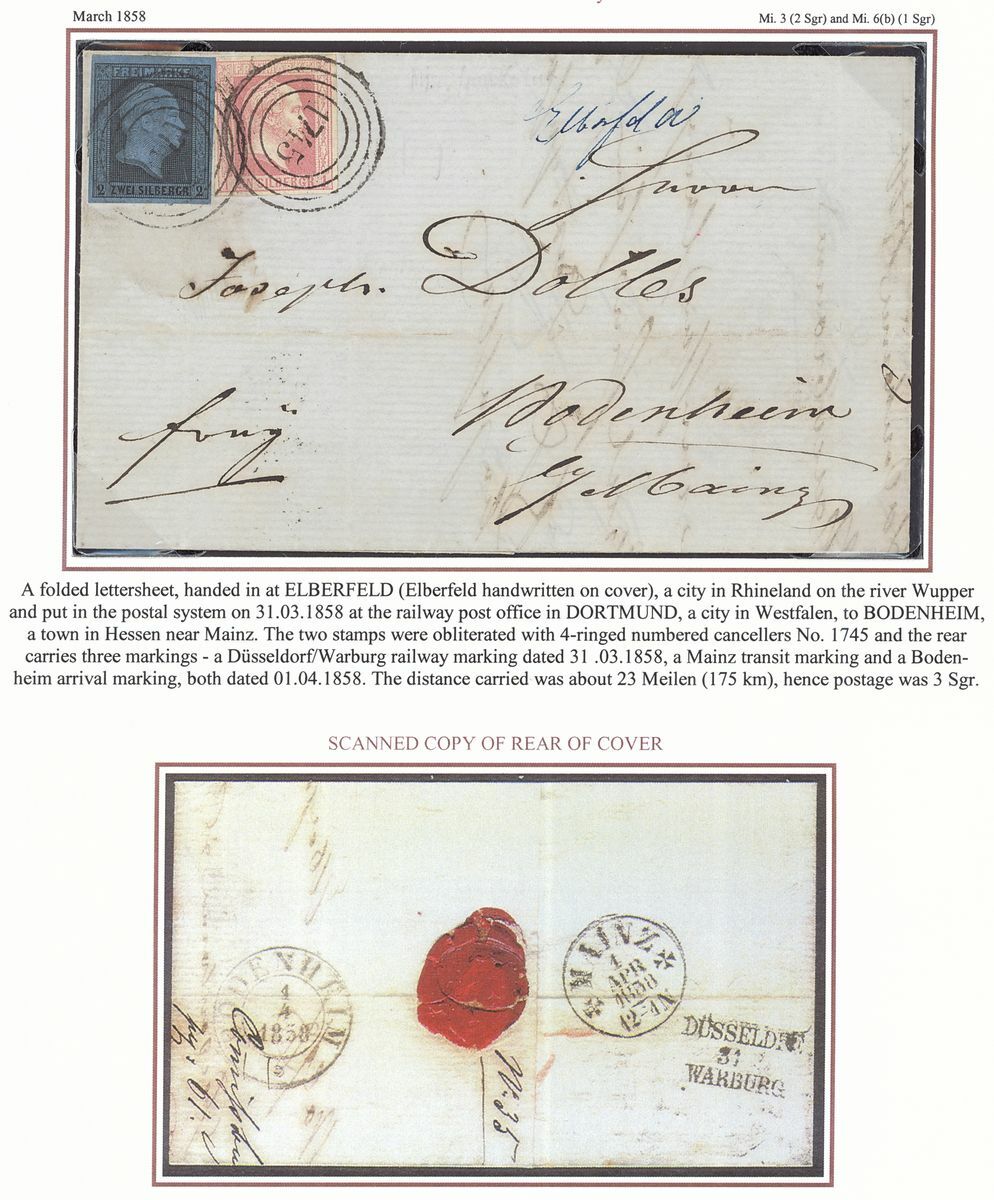 March 1858
Mi. 3 (2 Sgr) and Mi. 6(b) (1 Sgr)
FREIMARKE
2 ZWEI SILBERGR. 2
SILBERGR.
1745
Elberfeld
Herrn
Joseph Dolles
Bodenheim
b/ Mainz
A folded lettersheet, handed in at ELBERFELD (Elberfeld handwritten on cover), a city in Rhineland on the river Wupper
and put in the postal system on 31.03.1858 at the railway post office in DORTMUND, a city in Westfalen, to BODENHEIM,
a town in Hessen near Mainz. The two stamps were obliterated with 4-ringed numbered cancellers No. 1745 and the rear
carries three markings - a Düsseldorf/Warburg railway marking dated 31 .03.1858, a Mainz transit marking and a Boden-
heim arrival marking, both dated 01.04.1858. The distance carried was about 23 Meilen (175 km), hence postage was 3 Sgr.
SCANNED COPY OF REAR OF COVER
BODENHEIM
1
4
1858
MAINZ
1
APR
1858
DÜSSELDRF
31
WARBURG